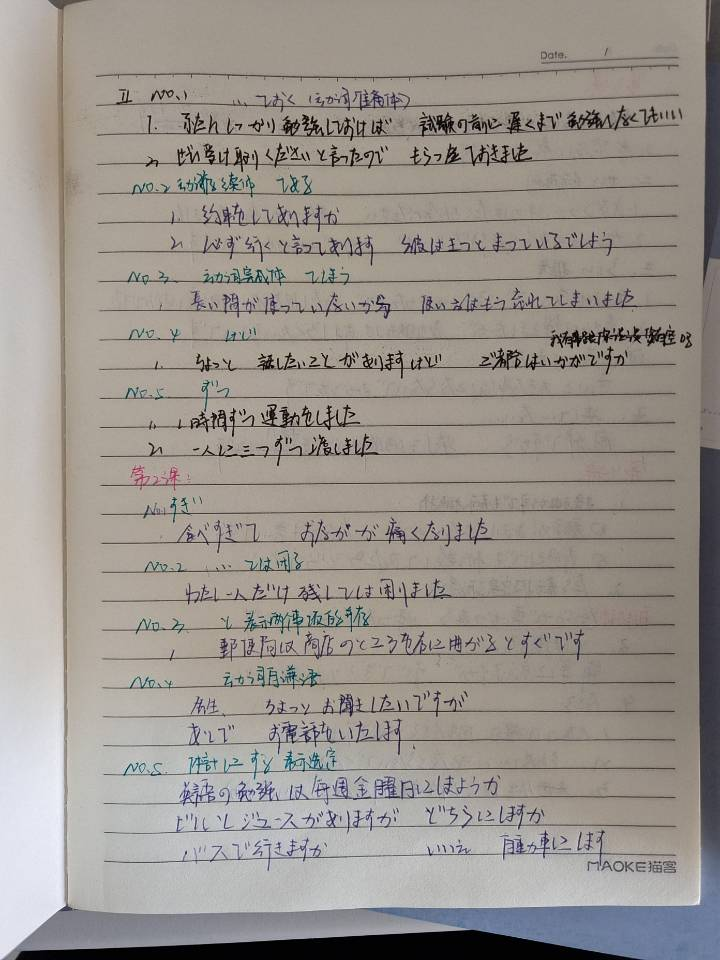 Date. 1
II NO.1 …ておく (动词准备体)
1. ふだんしっかり勉強しておけば 試験の前に遅くまで勉強しなくてもいい
2. ぜひ受け取りくださいと言ったので もらっておきました
NO.2 てある
1. 約束をしてありますか
2. 必ず行くと言ってあります 彼はきっとまっているでしょう
NO.3. 动词完成体 てしまう
1. 長い間が使っていないから 使い方はもう忘れてしまいました
NO.4 けど
1. ちょっと 話したいことがありますけど ご都合はいかがですか
NO.5. ずつ
1. 1時間ずつ運動をしました
2. 一人に三つずつ渡しました
第2课:
NO.1すぎ
食べすぎて おなかが痛くなりました
NO.2 …ては困る
わたし一人だけ残しては困りました
NO.3 と 表示两件事
1 郵便局は商店のところを右に曲がるとすぐです
NO.4 动词自谦语
先生、ちょっとお聞きしたいですが
あとで お電話をいたします
NO.5. 体言にする 表示选定
英語の勉強は毎週金曜日にしましょうか
ビールとジュースがありますが どちらにしますか
バスで行きますか いいえ 自動車にします
MAOKE猫客